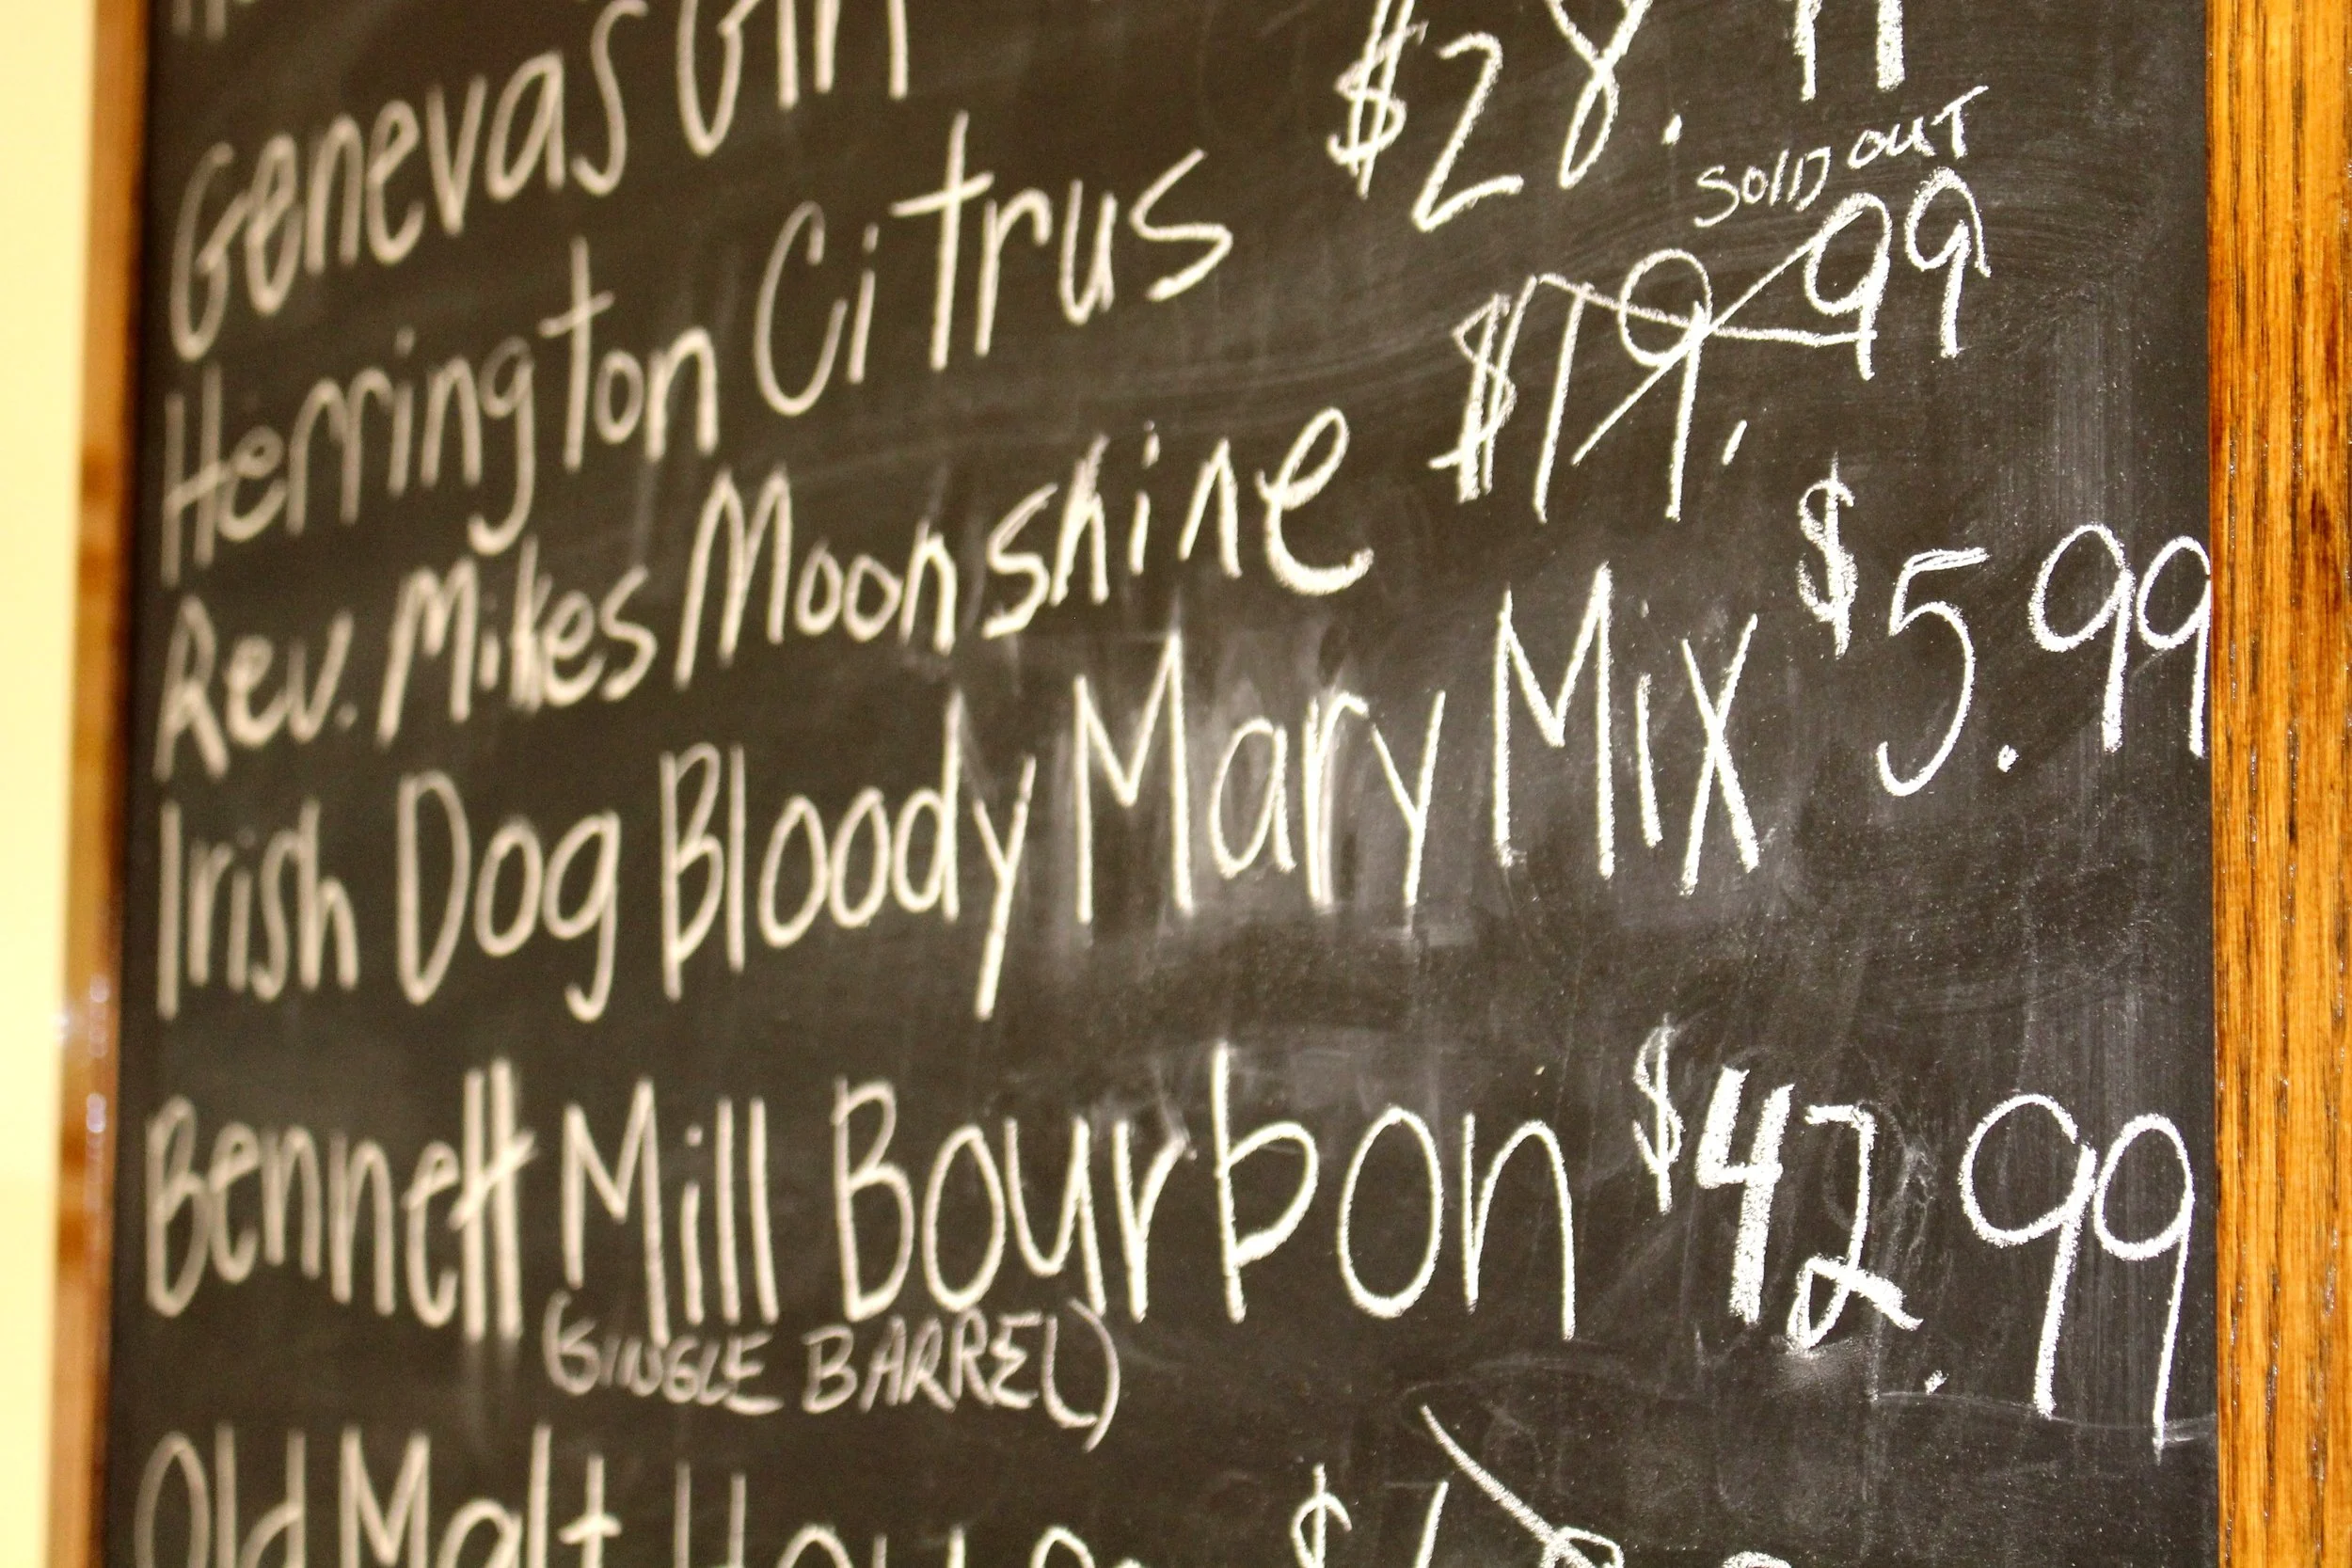 Genevas Gin
Herrington Citrus $28.
SOLD OUT
Rev. Mikes Moonshine $19.99
Irish Dog Bloody Mary Mix $5.99
Bennett Mill Bourbon $42.99
(SINGLE BARREL)
Old Malt